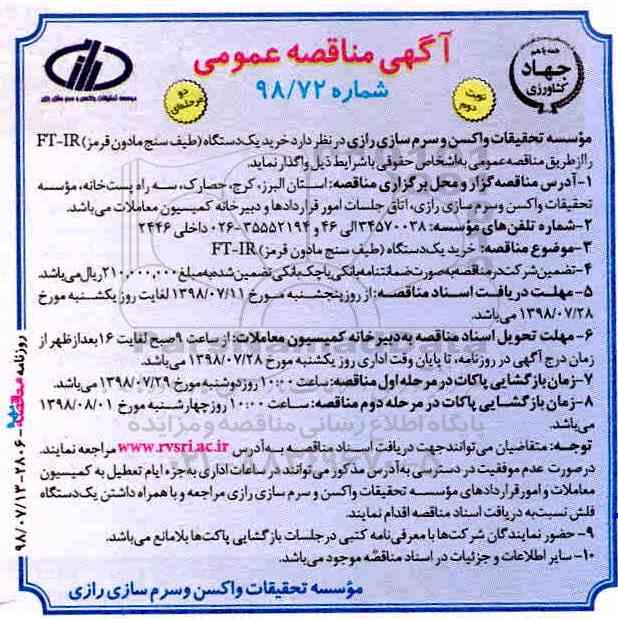 همه با هم
جهاد
کشاورزی
آگهی مناقصه عمومی
شماره ۹۸/۷۲
نوبت دوم
دو مرحله‌ای
موسسه تحقیقات واکسن و سرم سازی رازی
مؤسسه تحقیقات واکسن و سرم سازی رازی در نظر دارد خرید یک دستگاه (طیف سنج مادون قرمز) FT-IR
را از طریق مناقصه عمومی به اشخاص حقوقی با شرایط ذیل واگذار نماید.
۱- آدرس مناقصه گزار و محل برگزاری مناقصه: استان البرز، کرج، حصارک، سه راه پست خانه، مؤسسه
تحقیقات واکسن و سرم سازی رازی، اتاق جلسات امور قراردادها و دبیرخانه کمیسیون معاملات می‌باشد.
۲- شماره تلفن‌های مؤسسه: ۳۴۵۷۰۰۳۸ الی ۴۶ و ۳۵۵۵۲۱۹۴-۰۲۶ داخلی ۲۴۴۶
۳- موضوع مناقصه: خرید یک دستگاه (طیف سنج مادون قرمز) FT-IR
۴- تضمین شرکت در مناقصه به صورت ضمانتنامه بانکی یا چک بانکی تضمین شده به مبلغ ۲۱۰,۰۰۰,۰۰۰ ریال می‌باشد.
۵- مهلت دریافت اسناد مناقصه: از روز پنجشنبه مورخ ۱۳۹۸/۰۷/۱۱ لغایت روز یکشنبه مورخ
۱۳۹۸/۰۷/۲۸ می‌باشد.
۶- مهلت تحویل اسناد مناقصه به دبیرخانه کمیسیون معاملات: از ساعت ۹ صبح لغایت ۱۶ بعدازظهر از
زمان درج آگهی در روزنامه، تا پایان وقت اداری روز یکشنبه مورخ ۱۳۹۸/۰۷/۲۸ می‌باشد.
۷- زمان بازگشایی پاکات در مرحله اول مناقصه: ساعت ۱۰:۰۰ روز دوشنبه مورخ ۱۳۹۸/۰۷/۲۹ می‌باشد.
۸- زمان بازگشایی پاکات در مرحله دوم مناقصه: ساعت ۱۰:۰۰ روز چهارشنبه مورخ ۱۳۹۸/۰۸/۰۱
می‌باشد.
توجه: متقاضیان می‌توانند جهت دریافت اسناد مناقصه به آدرس www.rvsri.ac.ir مراجعه نمایند.
در صورت عدم موفقیت در دسترسی به آدرس مذکور می‌توانند در ساعات اداری به جزء ایام تعطیل به کمیسیون
معاملات و امور قراردادهای مؤسسه تحقیقات واکسن و سرم سازی رازی مراجعه و با همراه داشتن یک دستگاه
فلش نسبت به دریافت اسناد مناقصه اقدام نمایند.
۹- حضور نمایندگان شرکت‌ها با معرفی‌نامه کتبی در جلسات بازگشایی پاکت‌ها بلامانع می‌باشد.
۱۰- سایر اطلاعات و جزئیات در اسناد مناقصه موجود می‌باشد.
مؤسسه تحقیقات واکسن و سرم سازی رازی
روزنامه مناقصه ۲۸۰۶-۹۸/۰۷/۱۳
پایگاه اطلاع رسانی مناقصه و مزایده